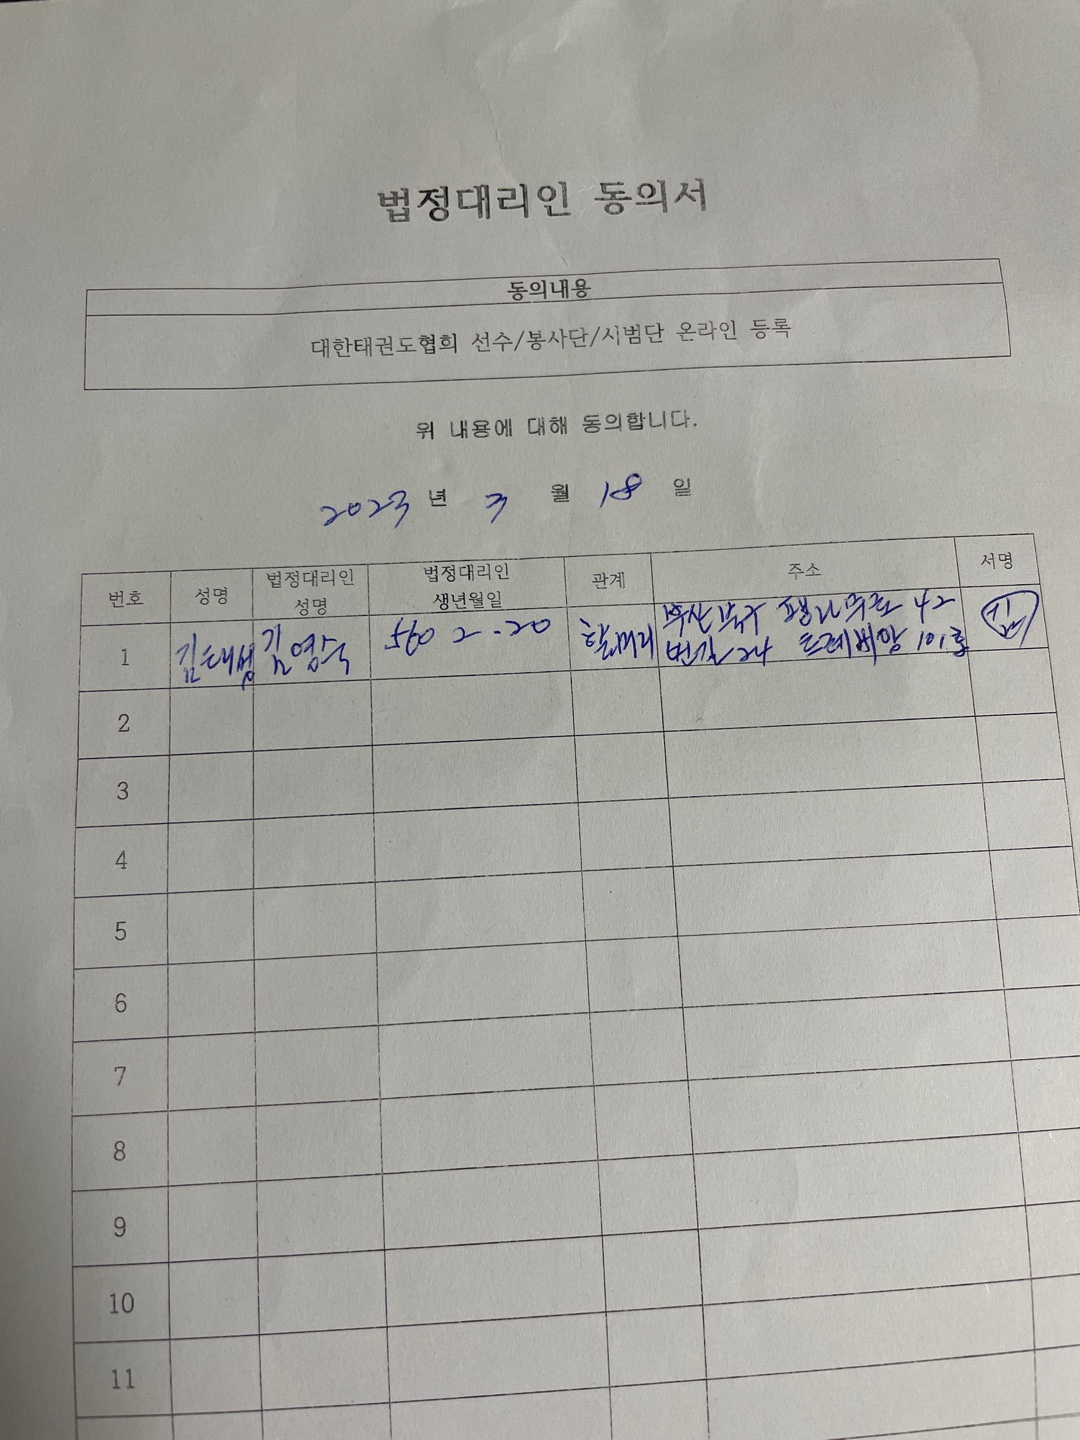 법정대리인 동의서
동의내용
대한태권도협회 선수/봉사단/시범단 온라인 등록
위 내용에 대해 동의합니다.
2023 년 3 월 18 일
번호 성명 법정대리인 성명 법정대리인 생년월일 관계 주소 서명
1 김태성 김영숙 할머니
101호
2
3
4
5
6
7
8
9
10
11